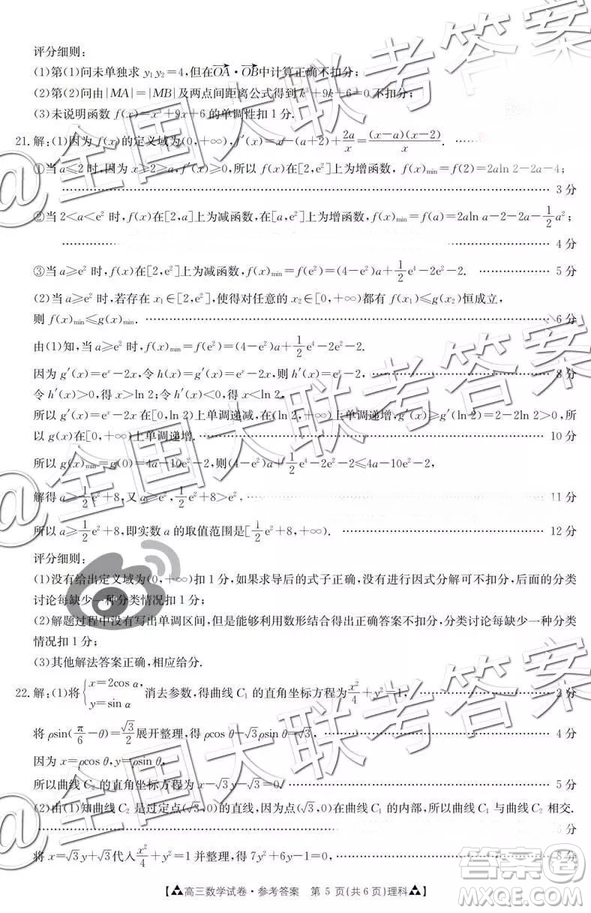 评分细则:
(1)第(1)问未单独求 y₁y₂=4,但在OA·OB中计算正确不扣分;
(2)第(2)问由|MA|=|MB|及两点间距离公式得到k³+9k+6=0不扣分;
(3)未说明函数 f(x)=x³+9x+6的单调性扣1分.
21.解:(1)因为f(x)的定义域为(0,+∞),f′(x)=x-(a+2)+2a/x=(x-a)(x-2)/x.
①当a≤2时,因为x≥2≥a,所以f(x)在[2,e²]上为增函数,所以f(x)min=f(2)=2aln 2-2a-4;
3分
②当2<a<e²时,f(x)在[2,a]上为减函数,在[a,e²]上为增函数,f(x)min=f(a)=2aln a-2-2a-1/2a²;
4分
③当a≥e²时,f(x)在[2,e²]上为减函数,f(x)min=f(e²)=(4-e²)a+1/2e⁴-2e²-2. 5分
(2)当a≥e²时,若存在x₁∈[2,e²],使得对任意的x₂∈[0,+∞),f(x₁)≤g(x₂)恒成立,
则f(x)min≤g(x)min. 6分
由(1)知,当a≥e²时,f(x)min=f(e²)=(4-e²)a+1/2e⁴-2e²-2.
因为g′(x)=eˣ-2x,令h(x)=g′(x)=eˣ-2x,则h′(x)=eˣ-2. 8分
令h′(x)>0,得x>ln 2;令h′(x)<0,得x<ln 2.
所以g′(x)在[0,ln 2)上单调递减,在(ln 2,+∞)上单调递增,g′(x)≥g′(ln 2)=2-2ln 2>0,
所以g(x)在[0,+∞)上单调递增. 10分
所以g(x)min=g(0)=4a-10-2e²,则(4-e²)a+1/2e⁴-2e²-2≤4a-10-2e²,
解得a≥1/2e²+8,又a≥e², 11分
所以a≥1/2e²+8,即实数a的取值范围是[1/2e²+8,+∞). 12分
评分细则:
(1)没有给出定义域为(0,+∞)扣1分,如果求导后的式子正确,没有进行因式分解可不扣分,后面的分类
讨论每缺少一种分类情况扣1分;
(2)解题过程中没有写出单调区间,但是能够利用数形结合得出正确答案不扣分,分类讨论每缺少一种分
类情况扣1分;
(3)其他解法答案正确,相应给分.
22.解:(1)将{x=2cos α, y=sin α 消去参数,得曲线C₁的直角坐标方程为x²/4+y²=1, 3分
将ρsin(π/6-θ)=√3/2展开整理,得ρcos θ-√3ρsin θ=√3,
因为x=ρcos θ,y=ρsin θ,
所以曲线C₂的直角坐标方程为x-√3y-√3=0. 5分
(2)由(1)知曲线C₂是过定点(√3,0)的直线,因为点(√3,0)在曲线C₁的内部,所以曲线C₁与曲线C₂相交.
6分
将x=√3y+√3代入x²/4+y²=1,整理得7y²+6y-1=0, 8分
高三数学试卷·参考答案 第5页(共6页)理科
@全国大联考答案
@全国大联考答案
@全国大联考答案